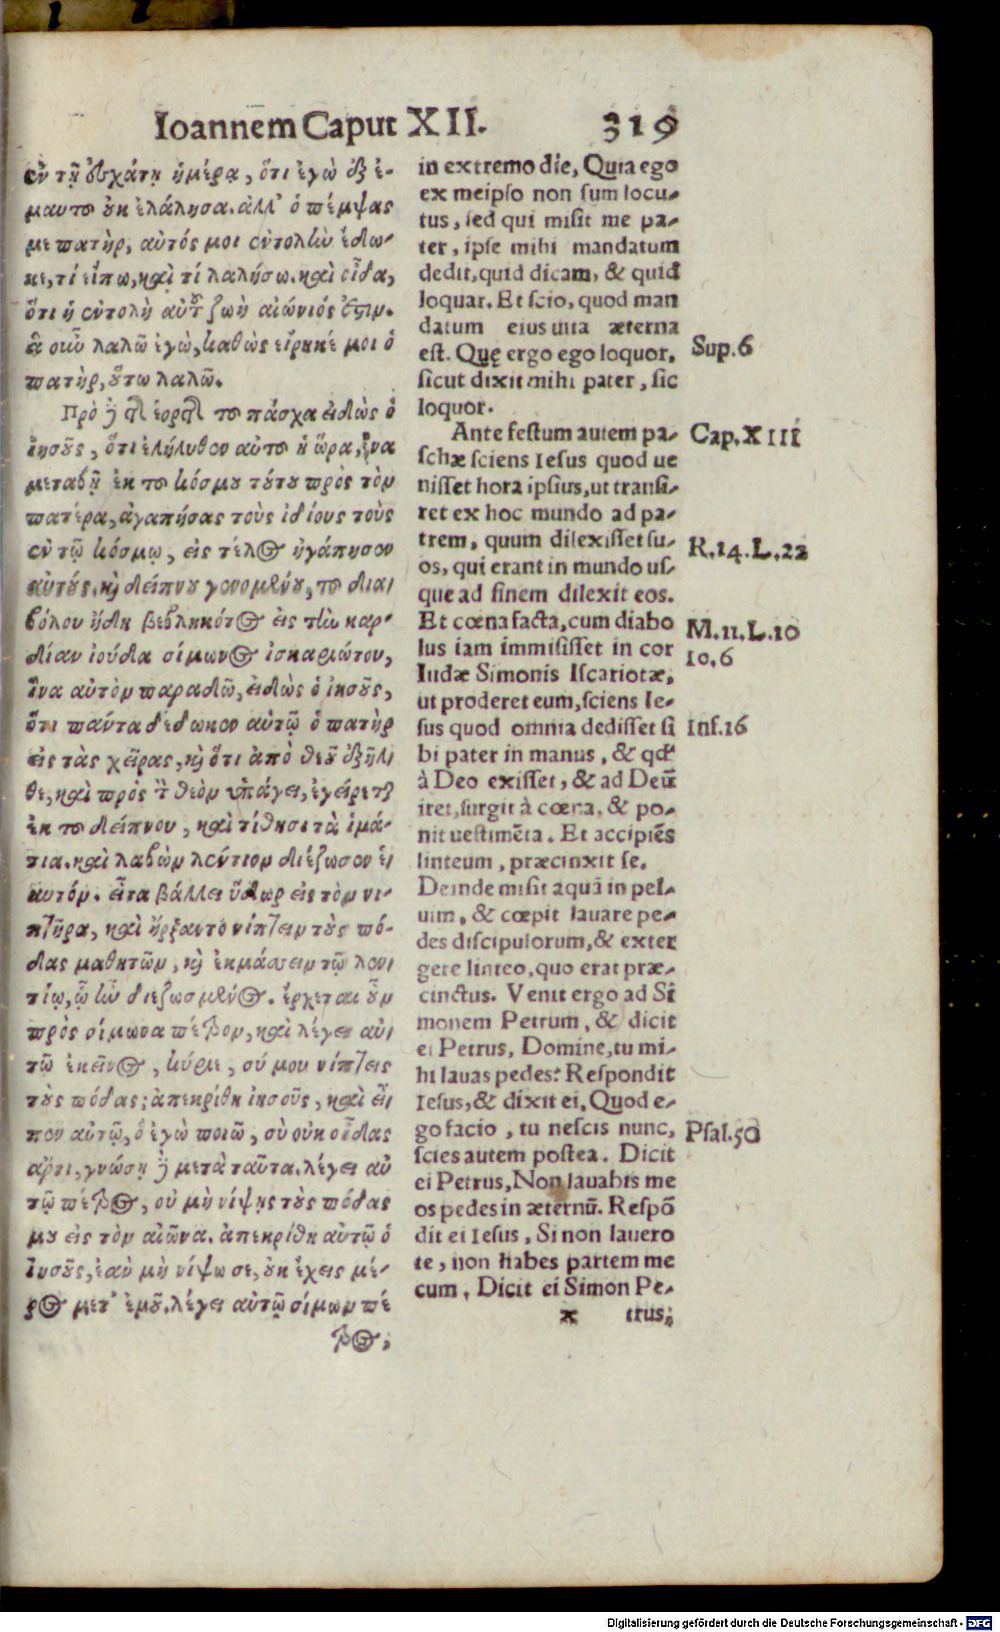 Ioannem Caput XII. 319
ἐν τῇ ἐσχάτῃ ἡμέρᾳ, ὅτι ἐγὼ ἐξ ἐ-
μαυτοῦ οὐκ ἐλάλησα. ἀλλ' ὁ πέμψας
με πατὴρ, αὐτός μοι ἐντολὴν ἔδω-
κε, τί εἴπω, καὶ τί λαλήσω. καὶ οἶδα,
ὅτι ἡ ἐντολὴ αὐτοῦ ζωὴ αἰώνιός ἐστιν.
ἃ οὖν λαλῶ ἐγὼ, καθὼς εἴρηκέ μοι ὁ
πατὴρ, οὕτω λαλῶ.
Πρὸ δὲ τῆς ἑορτῆς τοῦ πάσχα εἰδὼς ὁ
ἰησοῦς, ὅτι ἐλήλυθεν αὐτοῦ ἡ ὥρα, ἵνα
μεταβῇ ἐκ τοῦ κόσμου τούτου πρὸς τὸν
πατέρα, ἀγαπήσας τοὺς ἰδίους τοὺς
ἐν τῷ κόσμῳ, εἰς τέλος ἠγάπησεν
αὐτούς. καὶ δείπνου γενομένου, τοῦ δια
βόλου ἤδη βεβληκότος εἰς τὴν καρ-
δίαν ἰούδα σίμωνος ἰσκαριώτου,
ἵνα αὐτὸν παραδῶ, εἰδὼς ὁ ἰησοῦς,
ὅτι πάντα δέδωκεν αὐτῷ ὁ πατὴρ
εἰς τὰς χεῖρας, καὶ ὅτι ἀπὸ θεοῦ ἐξῆλ
θε, καὶ πρὸς τὸν θεὸν ὑπάγει, ἐγείρεται
ἐκ τοῦ δείπνου, καὶ τίθησι τὰ ἱμά-
τια. καὶ λαβὼν λέντιον διέζωσεν ἑ
αυτόν. εἶτα βάλλει ὕδωρ εἰς τὸν νι-
πτῆρα, καὶ ἤρξαντο νίπτειν τοὺς πό-
δας μαθητῶν, καὶ ἐκμάσσειν τῷ λεν
τίῳ, ᾧ ἦν διεζωσμένος. ἔρχεται οὖν
πρὸς σίμωνα πέτρον, καὶ λέγει αὐ
τῷ ἐκεῖνος, κύριε, σύ μου νίπτεις
τοὺς πόδας; ἀπεκρίθη ἰησοῦς, καὶ εἶ
πεν αὐτῷ, ὃ ἐγὼ ποιῶ, σὺ οὐκ οἶδας
ἄρτι, γνώσῃ δὲ μετὰ ταῦτα. λέγει αὐ
τῷ πέτρος, οὐ μὴ νίψῃς τοὺς πόδας
μου εἰς τὸν αἰῶνα. ἀπεκρίθη αὐτῷ ὁ
ἰησοῦς, ἐὰν μὴ νίψω σε, οὐκ ἔχεις μέ-
ρος μετ' ἐμοῦ. λέγει αὐτῷ σίμων πέ
τρος,
in extremo die, Quia ego
ex meipso non sum locu-
tus, sed qui misit me pa-
ter, ipse mihi mandatum
dedit, quid dicam, & quid
loquar. Et scio, quod man
datum eius uita æterna
est. Quę ergo ego loquor,
sicut dixit mihi pater, sic
loquor.
Ante festum autem pa-
schæ sciens Iesus quod ue
nisset hora ipsius, ut transi-
ret ex hoc mundo ad pa-
trem, quum dilexisset su-
os, qui erant in mundo us-
que ad finem dilexit eos.
Et cœna facta, cum diabo
lus iam immisisset in cor
Iudæ Simonis Iscariotæ,
ut proderet eum, sciens Ie-
sus quod omnia dedisset si
bi pater in manus, & qd
à Deo exisset, & ad Deũ
iret, surgit à cœna, & po-
nit uestimẽta. Et accipiẽs
linteum, præcinxit se.
Deinde misit aquã in pel-
uim, & cœpit lauare pe-
des discipulorum, & exter
gere linteo, quo erat præ-
cinctus. Venit ergo ad Si
monem Petrum, & dicit
ei Petrus, Domine, tu mi-
hi lauas pedes? Respondit
Iesus, & dixit ei, Quod e-
go facio, tu nescis nunc,
scies autem postea. Dicit
ei Petrus, Non lauabis me
os pedes in æternũ. Respõ
dit ei Iesus, Si non lauero
te, non habes partem me
cum, Dicit ei Simon Pe-
x trus,
Sup.6
Cap.XIII
R.14.L.22
M.11.L.10
Io.6
Inf.16
Psal.50
Digitalisierung gefördert durch die Deutsche Forschungsgemeinschaft - DFG